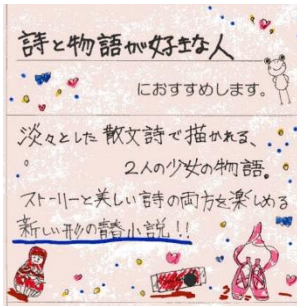 詩と物語が好きな人
におすすめします。
淡々とした散文詩で描かれる、
2人の少女の物語。
ストーリーと美しい詩の両方を楽しめる
新しい形の詩小説!!